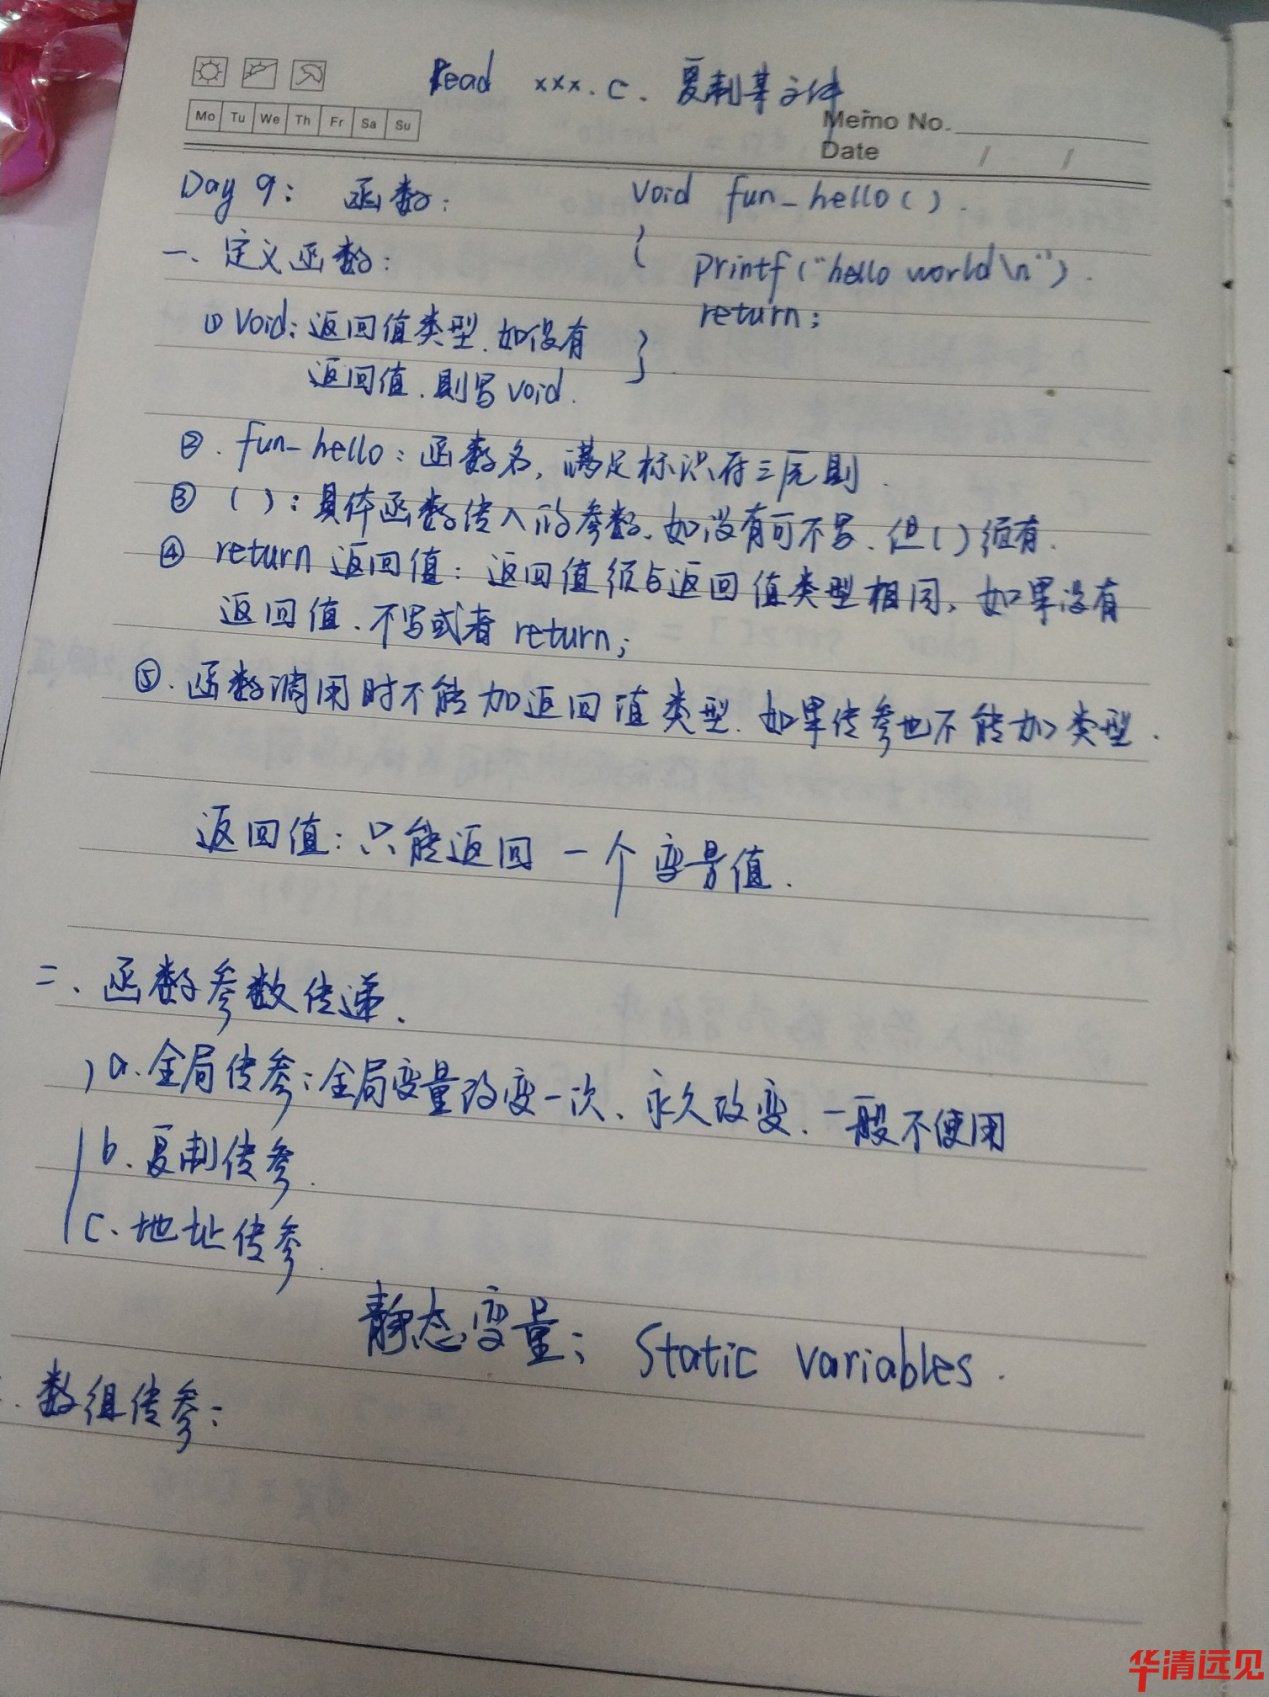 Read xxx.c. 复制某文件
Mo Tu We Th Fr Sa Su
Memo No.
Date / /
Day 9: 函数:
void fun_hello().
{
printf("hello world\n").
return;
}
一、定义函数:
① void: 返回值类型. 如没有
返回值. 则写 void.
②. fun_hello: 函数名, 满足标识符三原则.
③ ( ): 具体函数传入的参数. 如没有可不写. 但( )须有.
④ return 返回值: 返回值须与返回值类型相同. 如果没有
返回值. 不写或者 return;
⑤. 函数调用时不能加返回值类型. 如果传参也不能加类型.
返回值: 只能返回一个变量值.
二、函数参数传递.
a. 全局传参: 全局变量改变一次、永久改变. 一般不使用
b. 复制传参.
c. 地址传参.
静态变量; Static variables.
数组传参:
华清远见